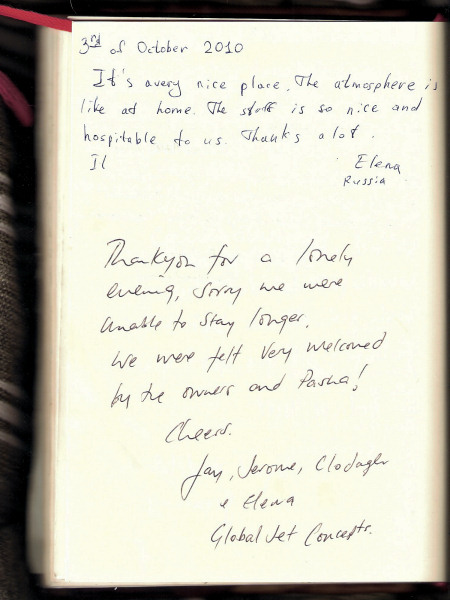 3rd of October 2010
It's avery nice place. The atmosphere is
like at home. The stuff is so nice and
hospitable to us. Thanks alot.
Il Elena
Russia
Thankyou for a lovely
evening, Sorry we were
unable to stay longer,
We were felt very welcomed
by the owners and Pasha!
Cheers.
Jay, Jerome, Clodagh
& Elena
Global Jet Concepts.